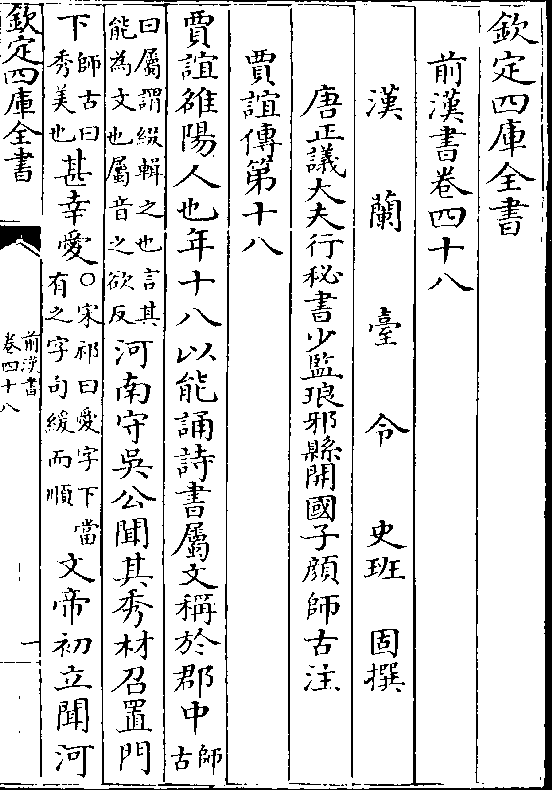 欽定四庫全書
前漢書卷四十八
漢蘭臺令史班固撰
唐正議大夫行秘書少監琅邪縣開國子顏師古注
賈誼傳第十八
賈誼雒陽人也年十八以能誦詩書屬文稱於郡中師古
曰屬謂綴輯之也言其能為文也屬音之欲反河南守吳公聞其秀材召置門
下師古曰秀美也甚幸愛○宋祁曰愛字下當有之字句緩而順文帝初立聞河
欽定四庫全書
前漢書
卷四十八
一